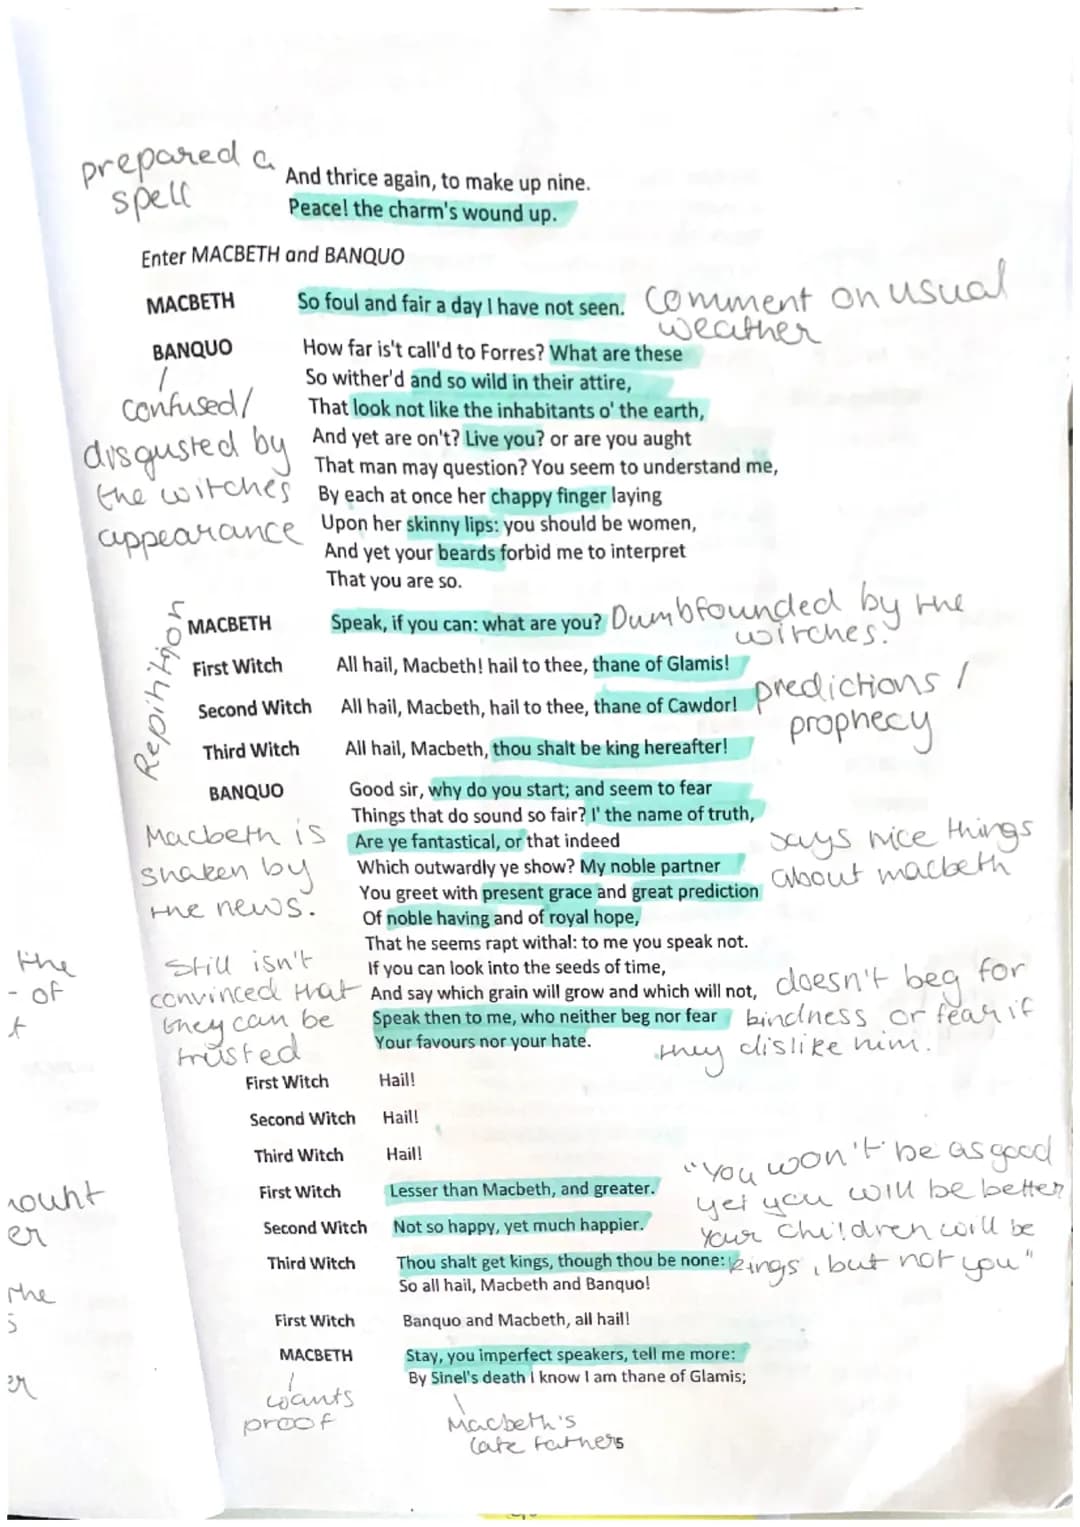 prepared a
spell
And thrice again, to make up nine.
Peace! the charm's wound up.
Enter MACBETH and BANQUO
MACBETH So foul and fair a day I have not seen.
comment on usual
weather
BANQUO How far is't call'd to Forres? What are these
So wither'd and so wild in their attire,
That look not like the inhabitants o' the earth,
And yet are on't? Live you? or are you aught
That man may question? You seem to understand me,
By each at once her chappy finger laying
Upon her skinny lips: you should be women,
And yet your beards forbid me to interpret
That you are so.
confused/
disgusted by
the witches
appearance
MACBETH Speak, if you can: what are you?
Dumbfounded by the
witches.
Repihition
First Witch All hail, Macbeth! hail to thee, thane of Glamis!
Second Witch All hail, Macbeth, hail to thee, thane of Cawdor!
Third Witch All hail, Macbeth, thou shalt be king hereafter!
predictions /
prophecy
BANQUO Good sir, why do you start; and seem to fear
Things that do sound so fair? I' the name of truth,
Are ye fantastical, or that indeed
Which outwardly ye show? My noble partner
You greet with present grace and great prediction
Of noble having and of royal hope,
That he seems rapt withal: to me you speak not.
If you can look into the seeds of time,
And say which grain will grow and which will not,
Speak then to me, who neither beg nor fear
Your favours nor your hate.
Macbeth is
shaken by
the news.
says nice things
about macbeth
Still isn't
convinced that
they can be
trusted
doesn't beg for
kindness or fear if
they dislike him.
the
- of
t
First Witch Hail!
Second Witch Hail!
Third Witch Hail!
First Witch Lesser than Macbeth, and greater.
Second Witch Not so happy, yet much happier.
Third Witch Thou shalt get kings, though thou be none:
So all hail, Macbeth and Banquo!
"You won't be as good
yet you will be better
Your children will be
kings, but not you"
First Witch Banquo and Macbeth, all hail!
MACBETH Stay, you imperfect speakers, tell me more:
By Sinel's death I know I am thane of Glamis;
wants
proof
Macbeth's
late fathers
er
the
s
er